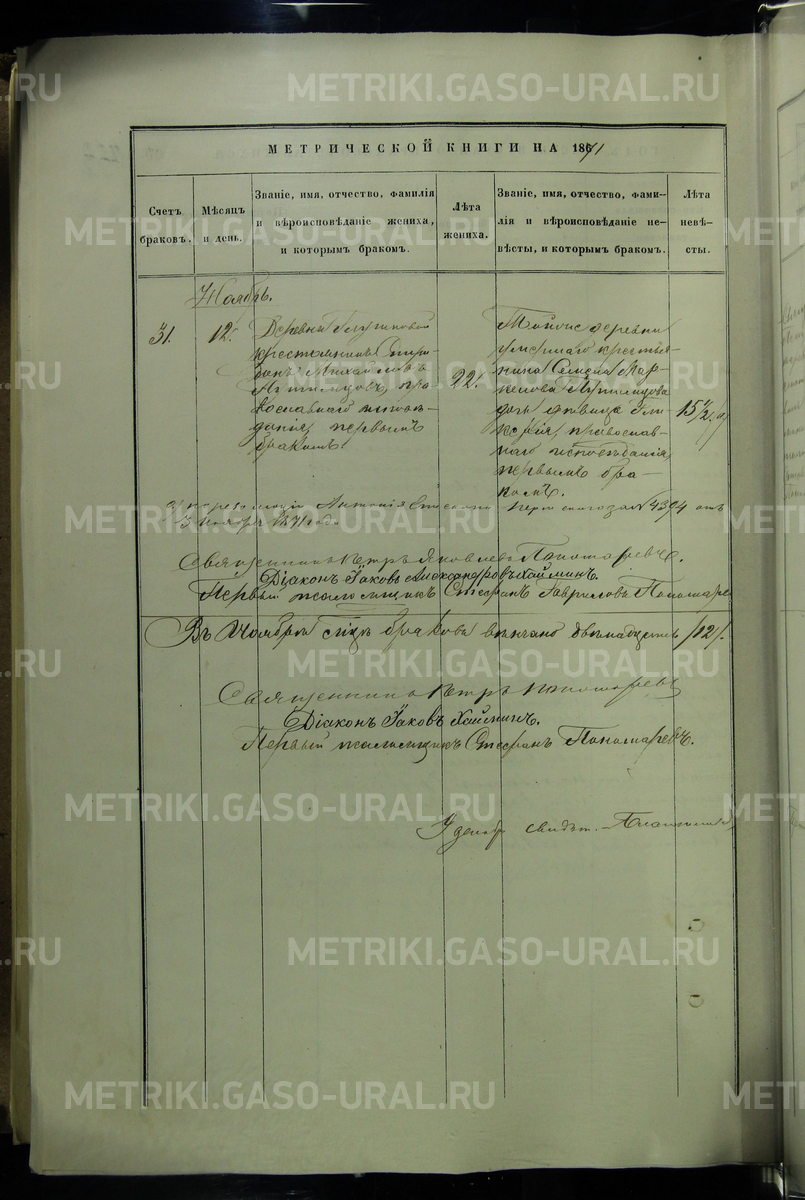 METRIKI.GASO-URAL.RU
МЕТРИЧЕСКОЙ КНИГИ НА 1871
Счетъ браковъ.
Мѣсяцъ и день.
Званіе, имя, отчество, фамилія
и вѣроисповѣданіе жениха,
и которымъ бракомъ.
Лѣта жениха.
Званіе, имя, отчество, фами-
лія и вѣроисповѣданіе не-
вѣсты, и которымъ бракомъ.
Лѣта невѣ-
сты.
Ноябрь.
31.
12.
Деревни
крестьянинъ Спири-
донъ Михайловъ
пра
вославнаго исповѣ-
данія, первымъ
бракомъ.
22.
Тойже деревни
умершаго крестья-
нина Семена Мар-
келова
дочь дѣвица Гли-
керія, православ-
наго исповѣданія,
первымъ бра-
комъ.
15 1/2.
по резолюціи Антонія Епископа 4394 отъ
3 Ноября 1871 года
Священникъ Петръ Яковлевъ Пономаревъ.
Діаконъ Іаковъ Александровъ Хайминъ.
Первый псаломщикъ Стефанъ Гавриловъ Пономаре
Въ Ноябрѣ мцѣ браковъ вѣнчано двѣнадцать /12/.
Священникъ Петръ Пономаревъ
Діаконъ Іаковъ Хайминъ.
Первый псаломщикъ Стефанъ Пономаревъ.
свидѣт.